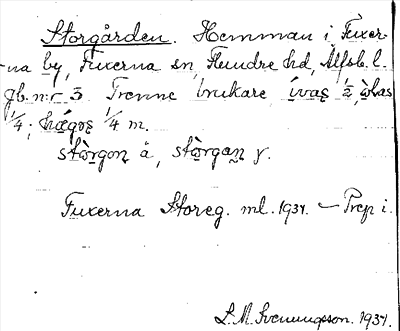 Storgården. Hemman i Fuxer-
-na by, Fuxerna sn, Flundre hd, Älfsb. l.
gb. nr 3 Trenne brukare, ívas 1/2,
1/4; 1/4 m.
stòrgon å, stòrgan y.
Fuxerna Storeg. ml. 1931. — Prep i.
L.M. Svenungsson. 1937.